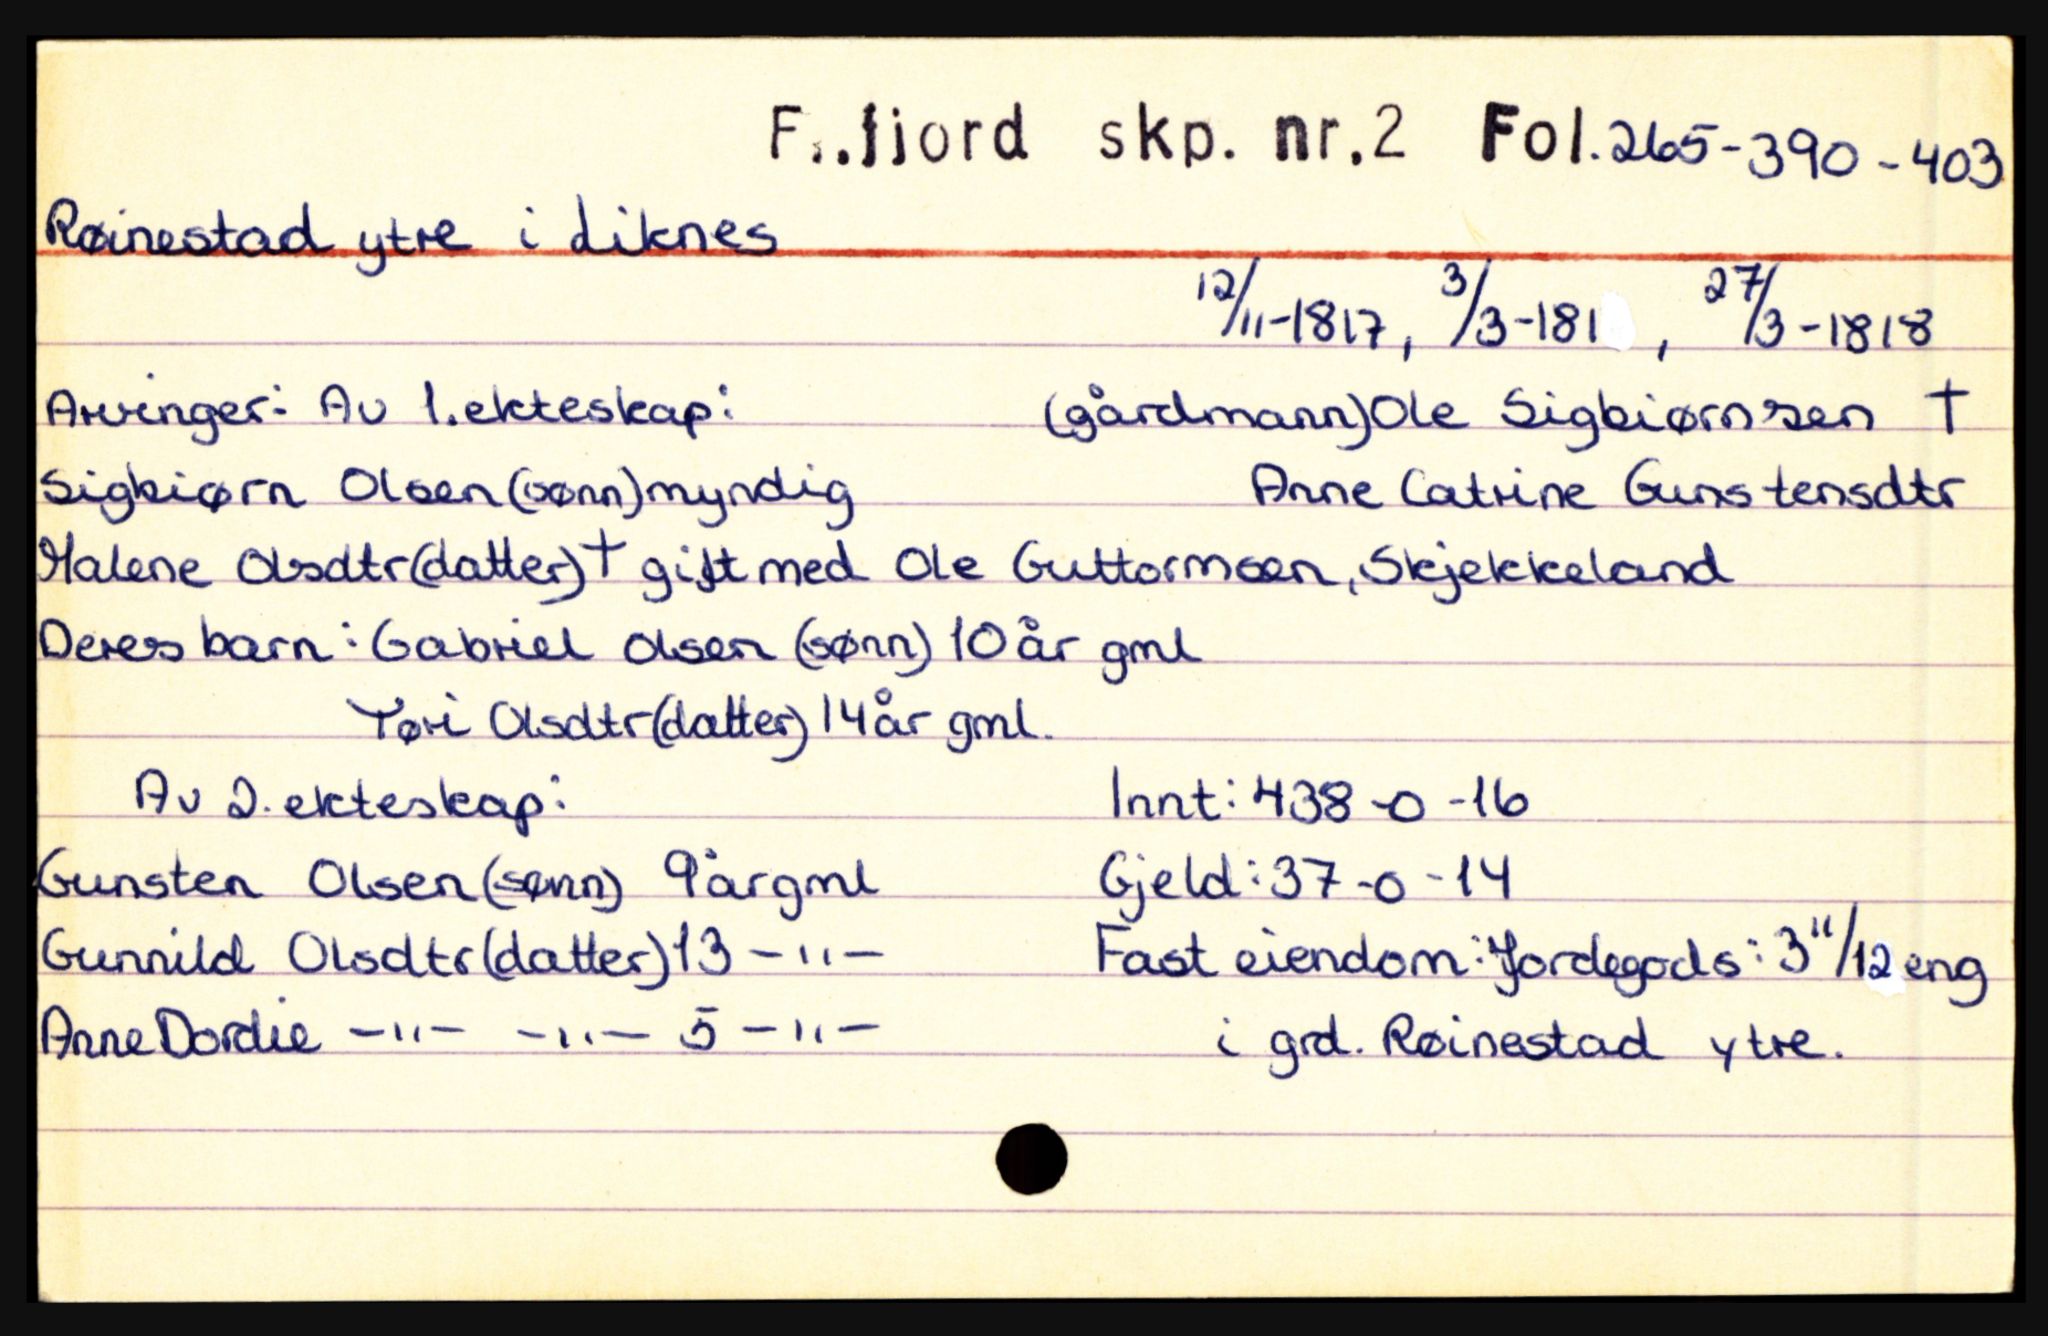 F..fjord skp. nr.2 Fol.265-390-403
Røinestad ytre i Liknes
12/11-1817, 3/3-181 , 27/3-1818
Arvinger: Av 1.ekteskap: (gårdmann)Ole Sigbiørnsen †
Sigbiørn Olsen(sønn)myndig Anne Catrine Gunstensdtr
Malene Olsdtr(datter)† gift med Ole Guttormsen, Skjekkeland
Deres barn: Gabriel Olsen (sønn) 10 år gml
Tøri Olsdtr(datter) 14 år gml.
Av 2. ekteskap: Innt: 438-0-16
Gunsten Olsen(sønn) 9 år gml Gjeld: 37-0-14
Gunnild Olsdtr(datter) 13 -"- Fast eiendom: Jordegods: 3 11/12 eng
Anne Dordie -"- -"- 5 -"- i grd. Røinestad ytre.